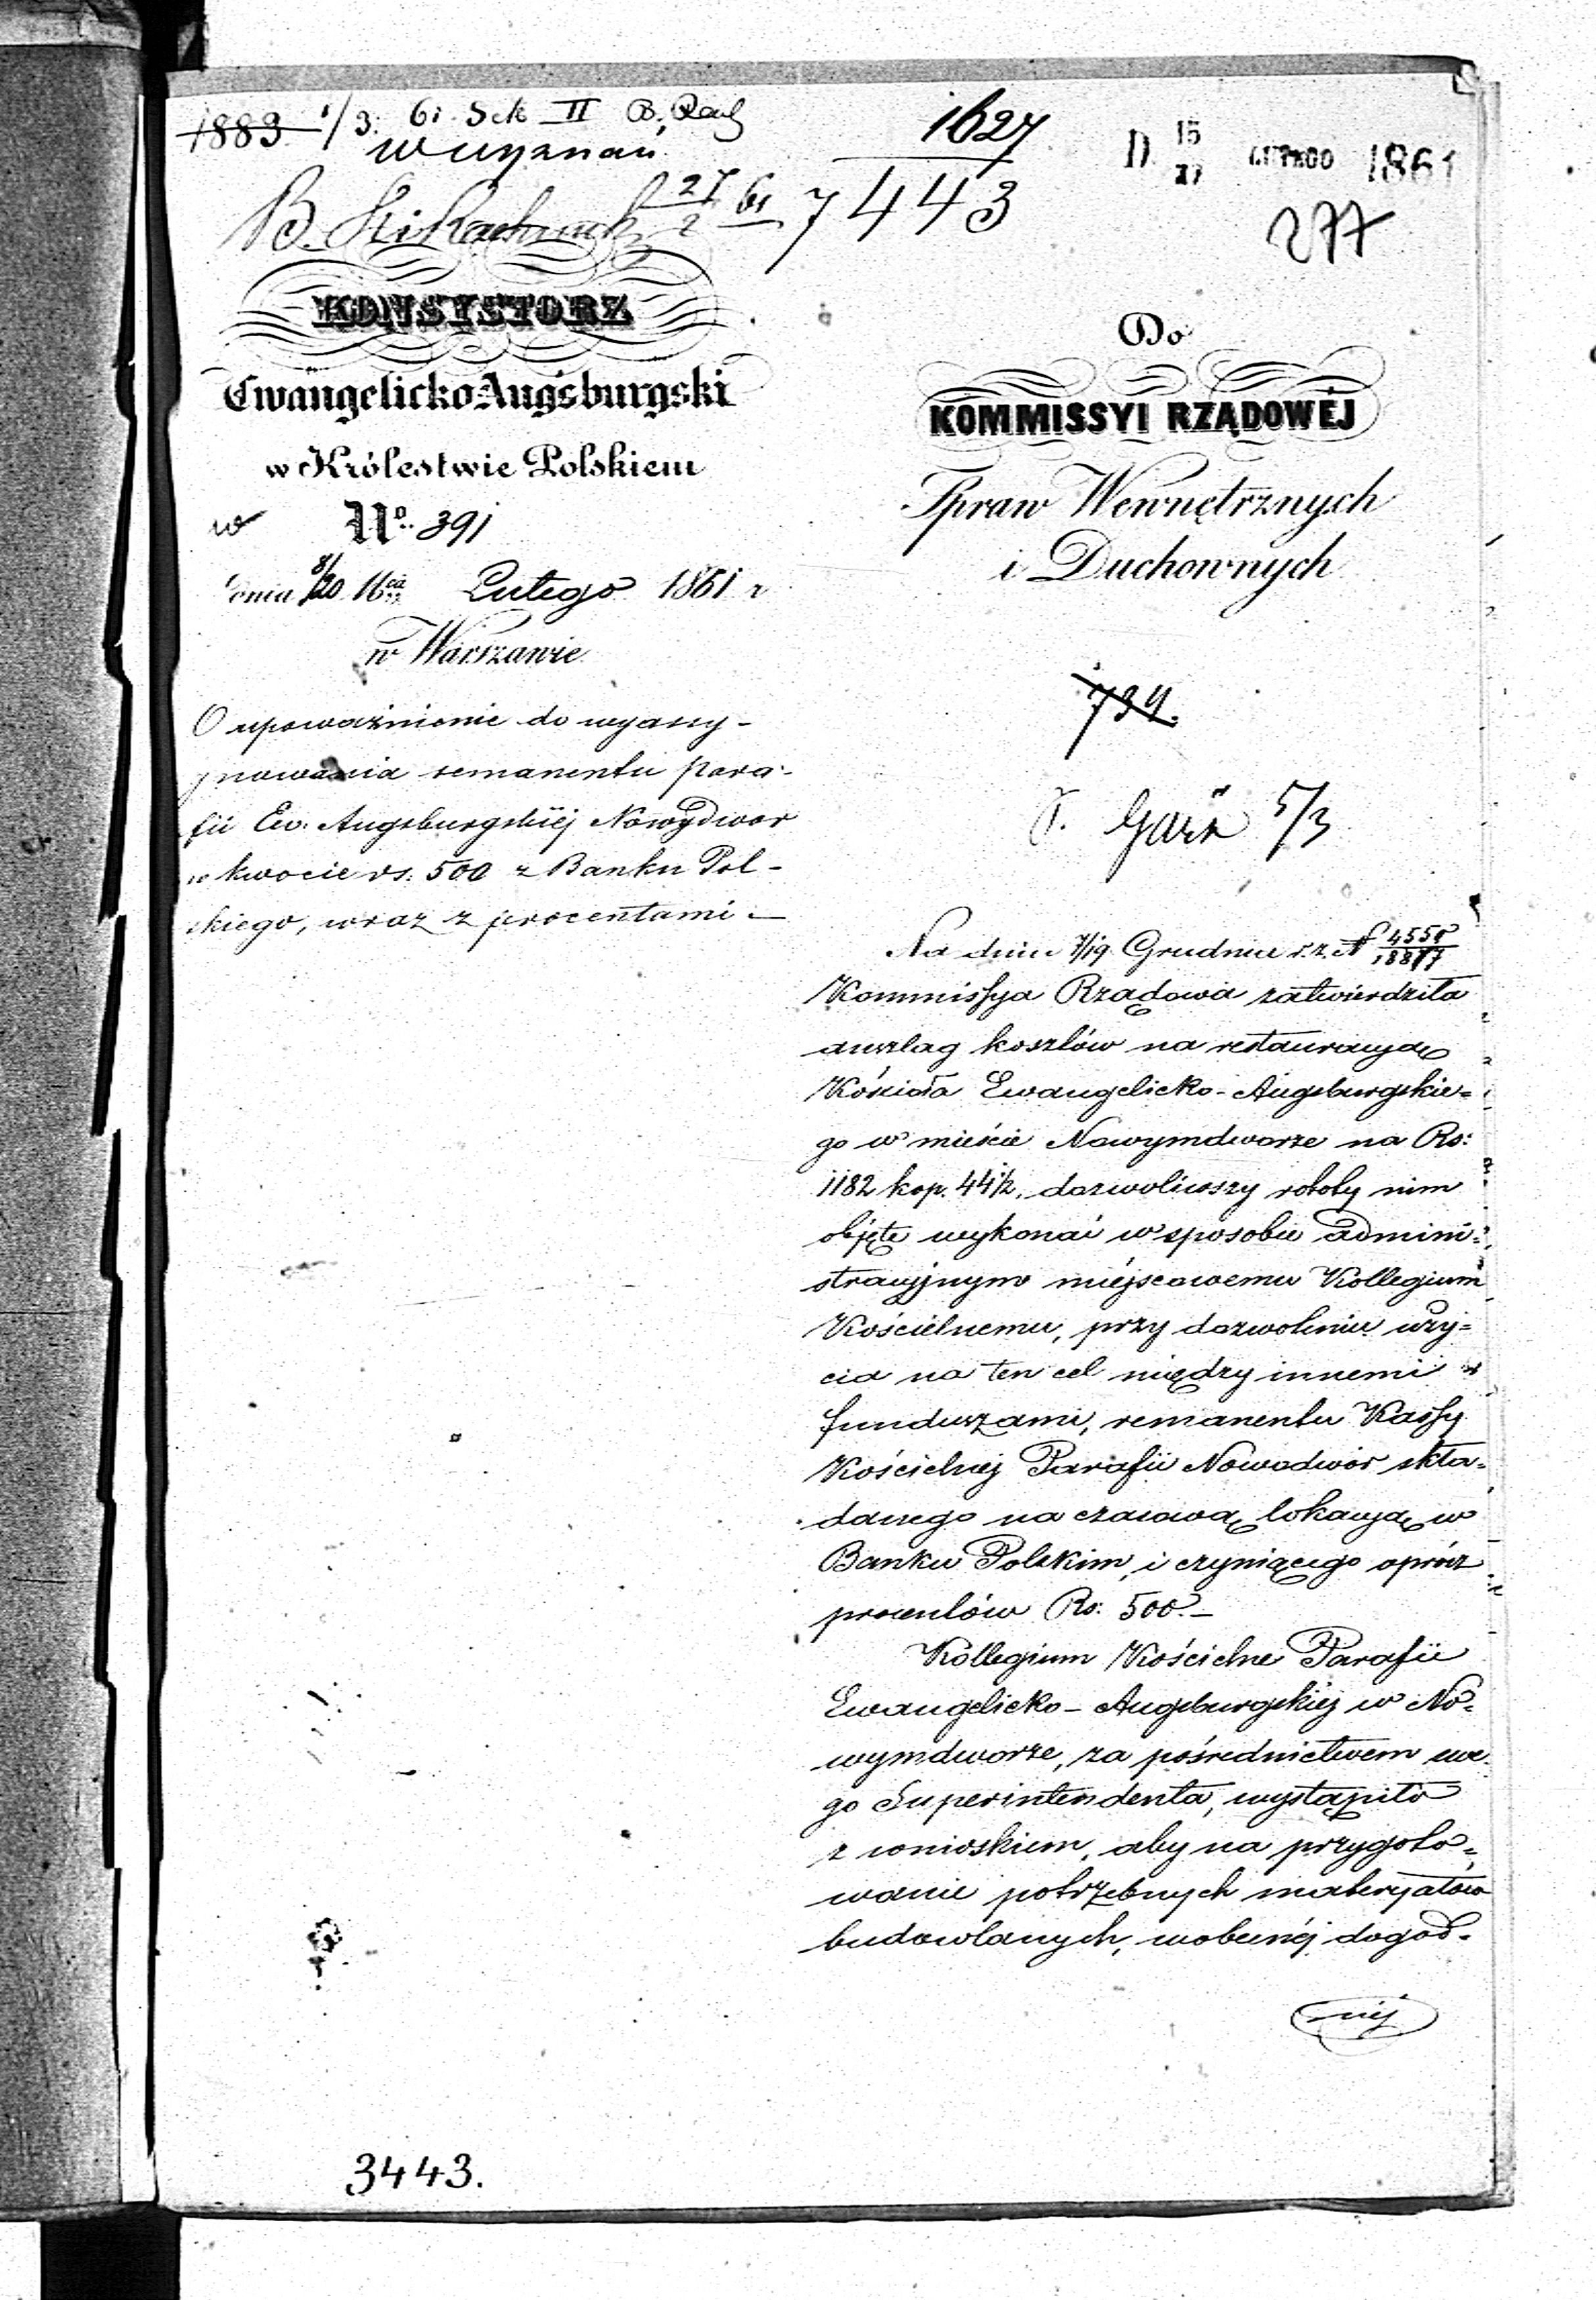 1883 1/3. 61 Sek II B. Rach
Wyznań
1627
7443
D. 15/27 LUTEGO 1861
277
27/2 61
KONSYSTORZ
Ewangelicko-Augsburgski
w Królestwie Polskiem
No. 391
dnia 8/20 Lutego 1861 r
w Warszawie
O upoważnienie do wyassy-
gnowania remanentu para-
fii Ew: Augsburgskiéj Nowydwor
w kwocie rs: 500 z Banku Pol-
skiego, wraz z procentami.—
Do
KOMMISSYI RZĄDOWÉJ
Spraw Wewnętrznych
i Duchownych
739.
5/3
Na dniu 7/19 Grudnia r. z. N 4550/18877
Kommissya Rządowa zatwierdziła
anszlag kosztów na restauracyą
Kościoła Ewangelicko-Augsburgskie=
go w mieście Nowymdworze na Rs:
1182 kop. 44½, dozwoliwszy roboty nim
objęte wykonać w sposobie admini=
stracyjnym miéjscowemu Kollegium
Kościelnemu, przy dozwoleniu uży=
cia na ten cel między innemi
funduszami, remanentu Kassy
Kościelnéj Parafii Nowodwór skła=
danego na czasową lokacyą w
Banku Polskim, i czyniącego oprócz
procentów Rs: 500.—
Kollegium Kościelne Parafii
Ewangelicko-Augsburgskiéj w No=
wymdworze, za pośrednictwem swe
go Superintendenta, wystąpiło
z wnioskiem, aby na przygoto=
wanie potrzebnych materyałów
budowlanych, w obecnéj dogod=
néj
3443.